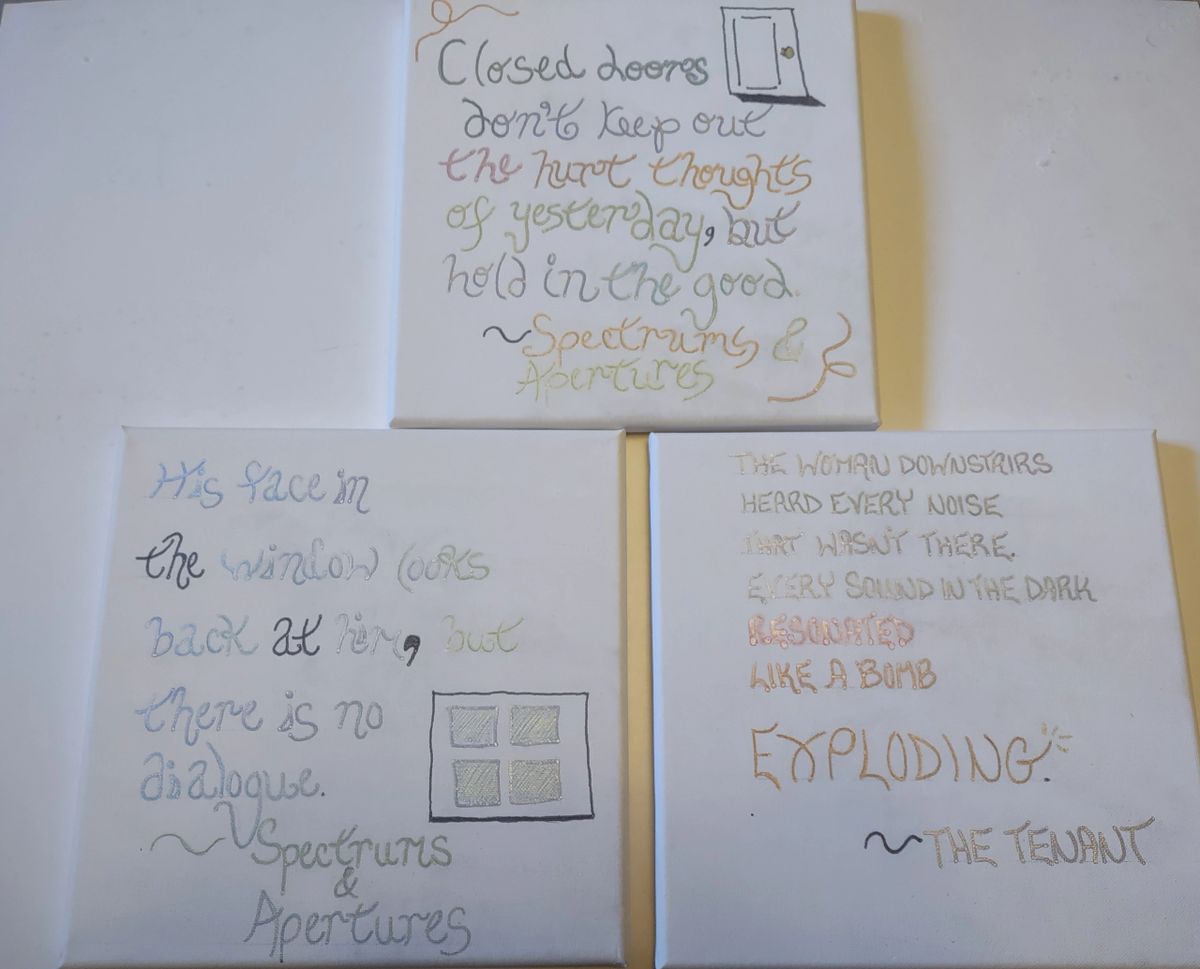 Closed doors
don't keep out
the hurt thoughts
of yesterday, but
hold in the good.
~Spectrums &
Apertures
His face in
the window looks
back at him, but
there is no
dialogue.
~Spectrums
&
Apertures
THE WOMAN DOWNSTAIRS
HEARD EVERY NOISE
THAT WASN'T THERE.
EVERY SOUND IN THE DARK
RESONATED
LIKE A BOMB
EXPLODING.
~THE TENANT